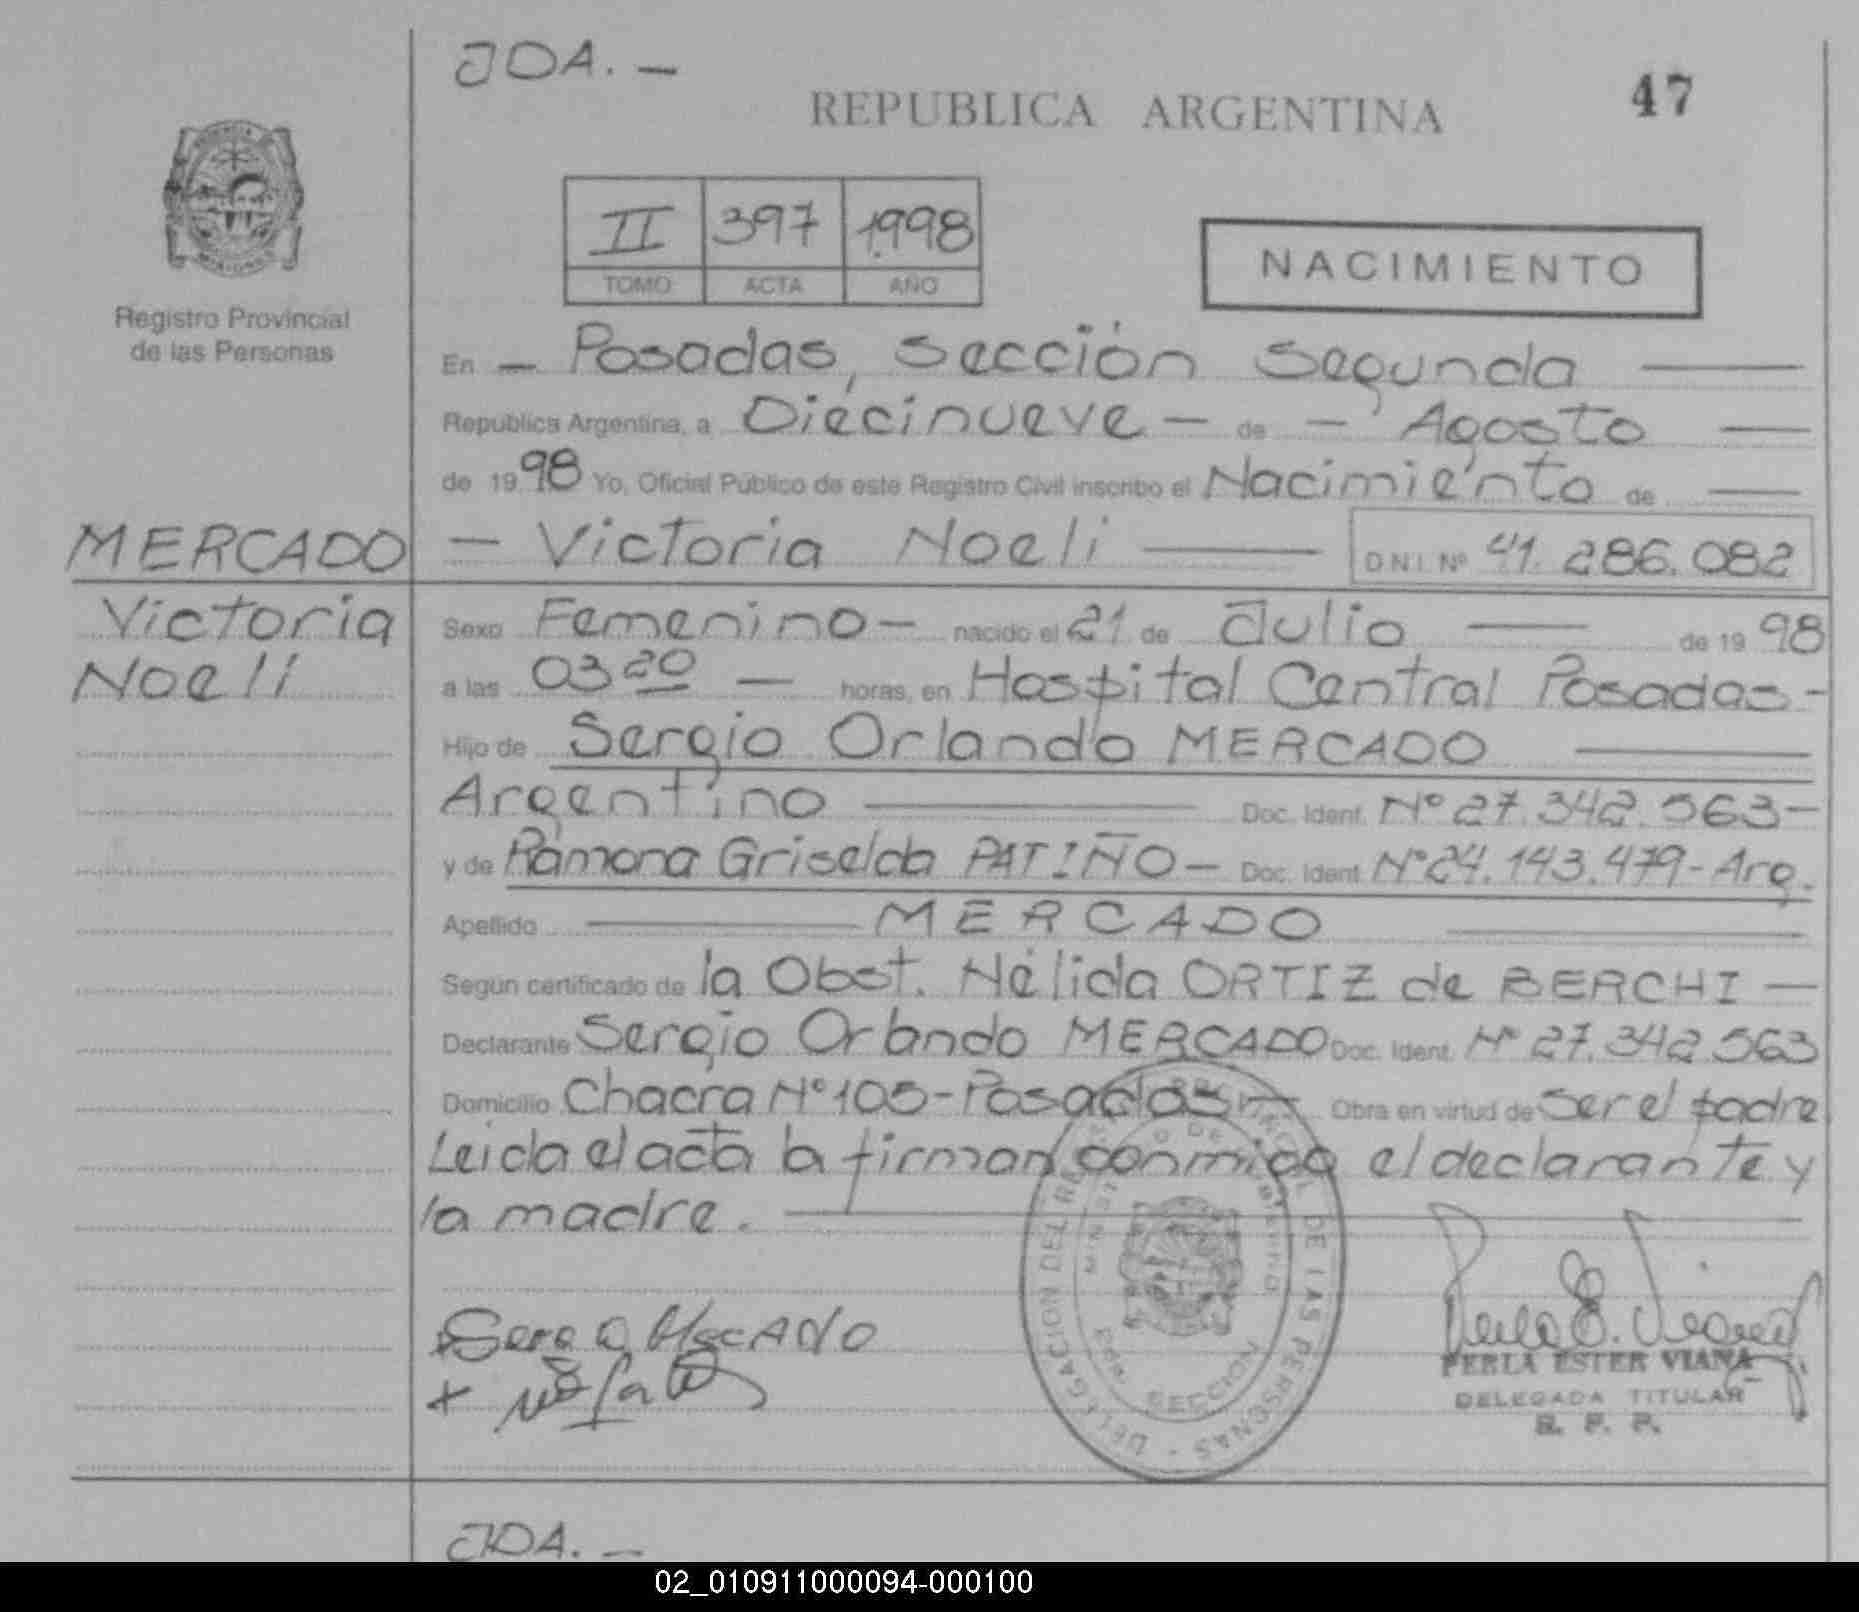 JOA. —
REPUBLICA ARGENTINA
47
II 397 1998
TOMO ACTA AÑO
NACIMIENTO
Registro Provincial
de las Personas
En — Posadas, Sección Segunda —
República Argentina, a Diecinueve — de — Agosto —
de 1998 Yo, Oficial Público de este Registro Civil inscribo el Nacimiento de —
MERCADO — Victoria Noeli — D.N.I. Nº 41.286.082
Victoria
Noeli
Sexo Femenino — nacido el 21 de Julio — de 1998
a las 03 20 — horas, en Hospital Central Posadas-
Hijo de Sergio Orlando MERCADO —
Argentino — Doc. Ident. Nº 27.342.563-
y de Ramona Griselda PATIÑO — Doc. Ident. Nº 24.143.479- Arg.
Apellido — MERCADO —
Según certificado de la Obst. Nélida ORTIZ de BERCHI —
Declarante Sergio Orlando MERCADO Doc. Ident. Nº 27.342.563
Domicilio Chacra Nº 105-Posadas- Obra en virtud de Ser el padre
Leida el acta la firman conmigo el declarante y
la madre. —
DELEGACION DEL REGISTRO PROVINCIAL DE LAS PERSONAS
MINISTERIO DE GOBIERNO
SECCION
PERLA ESTER VIANA
DELEGADA TITULAR
R. P. P.
JOA. —
02_010911000094-000100